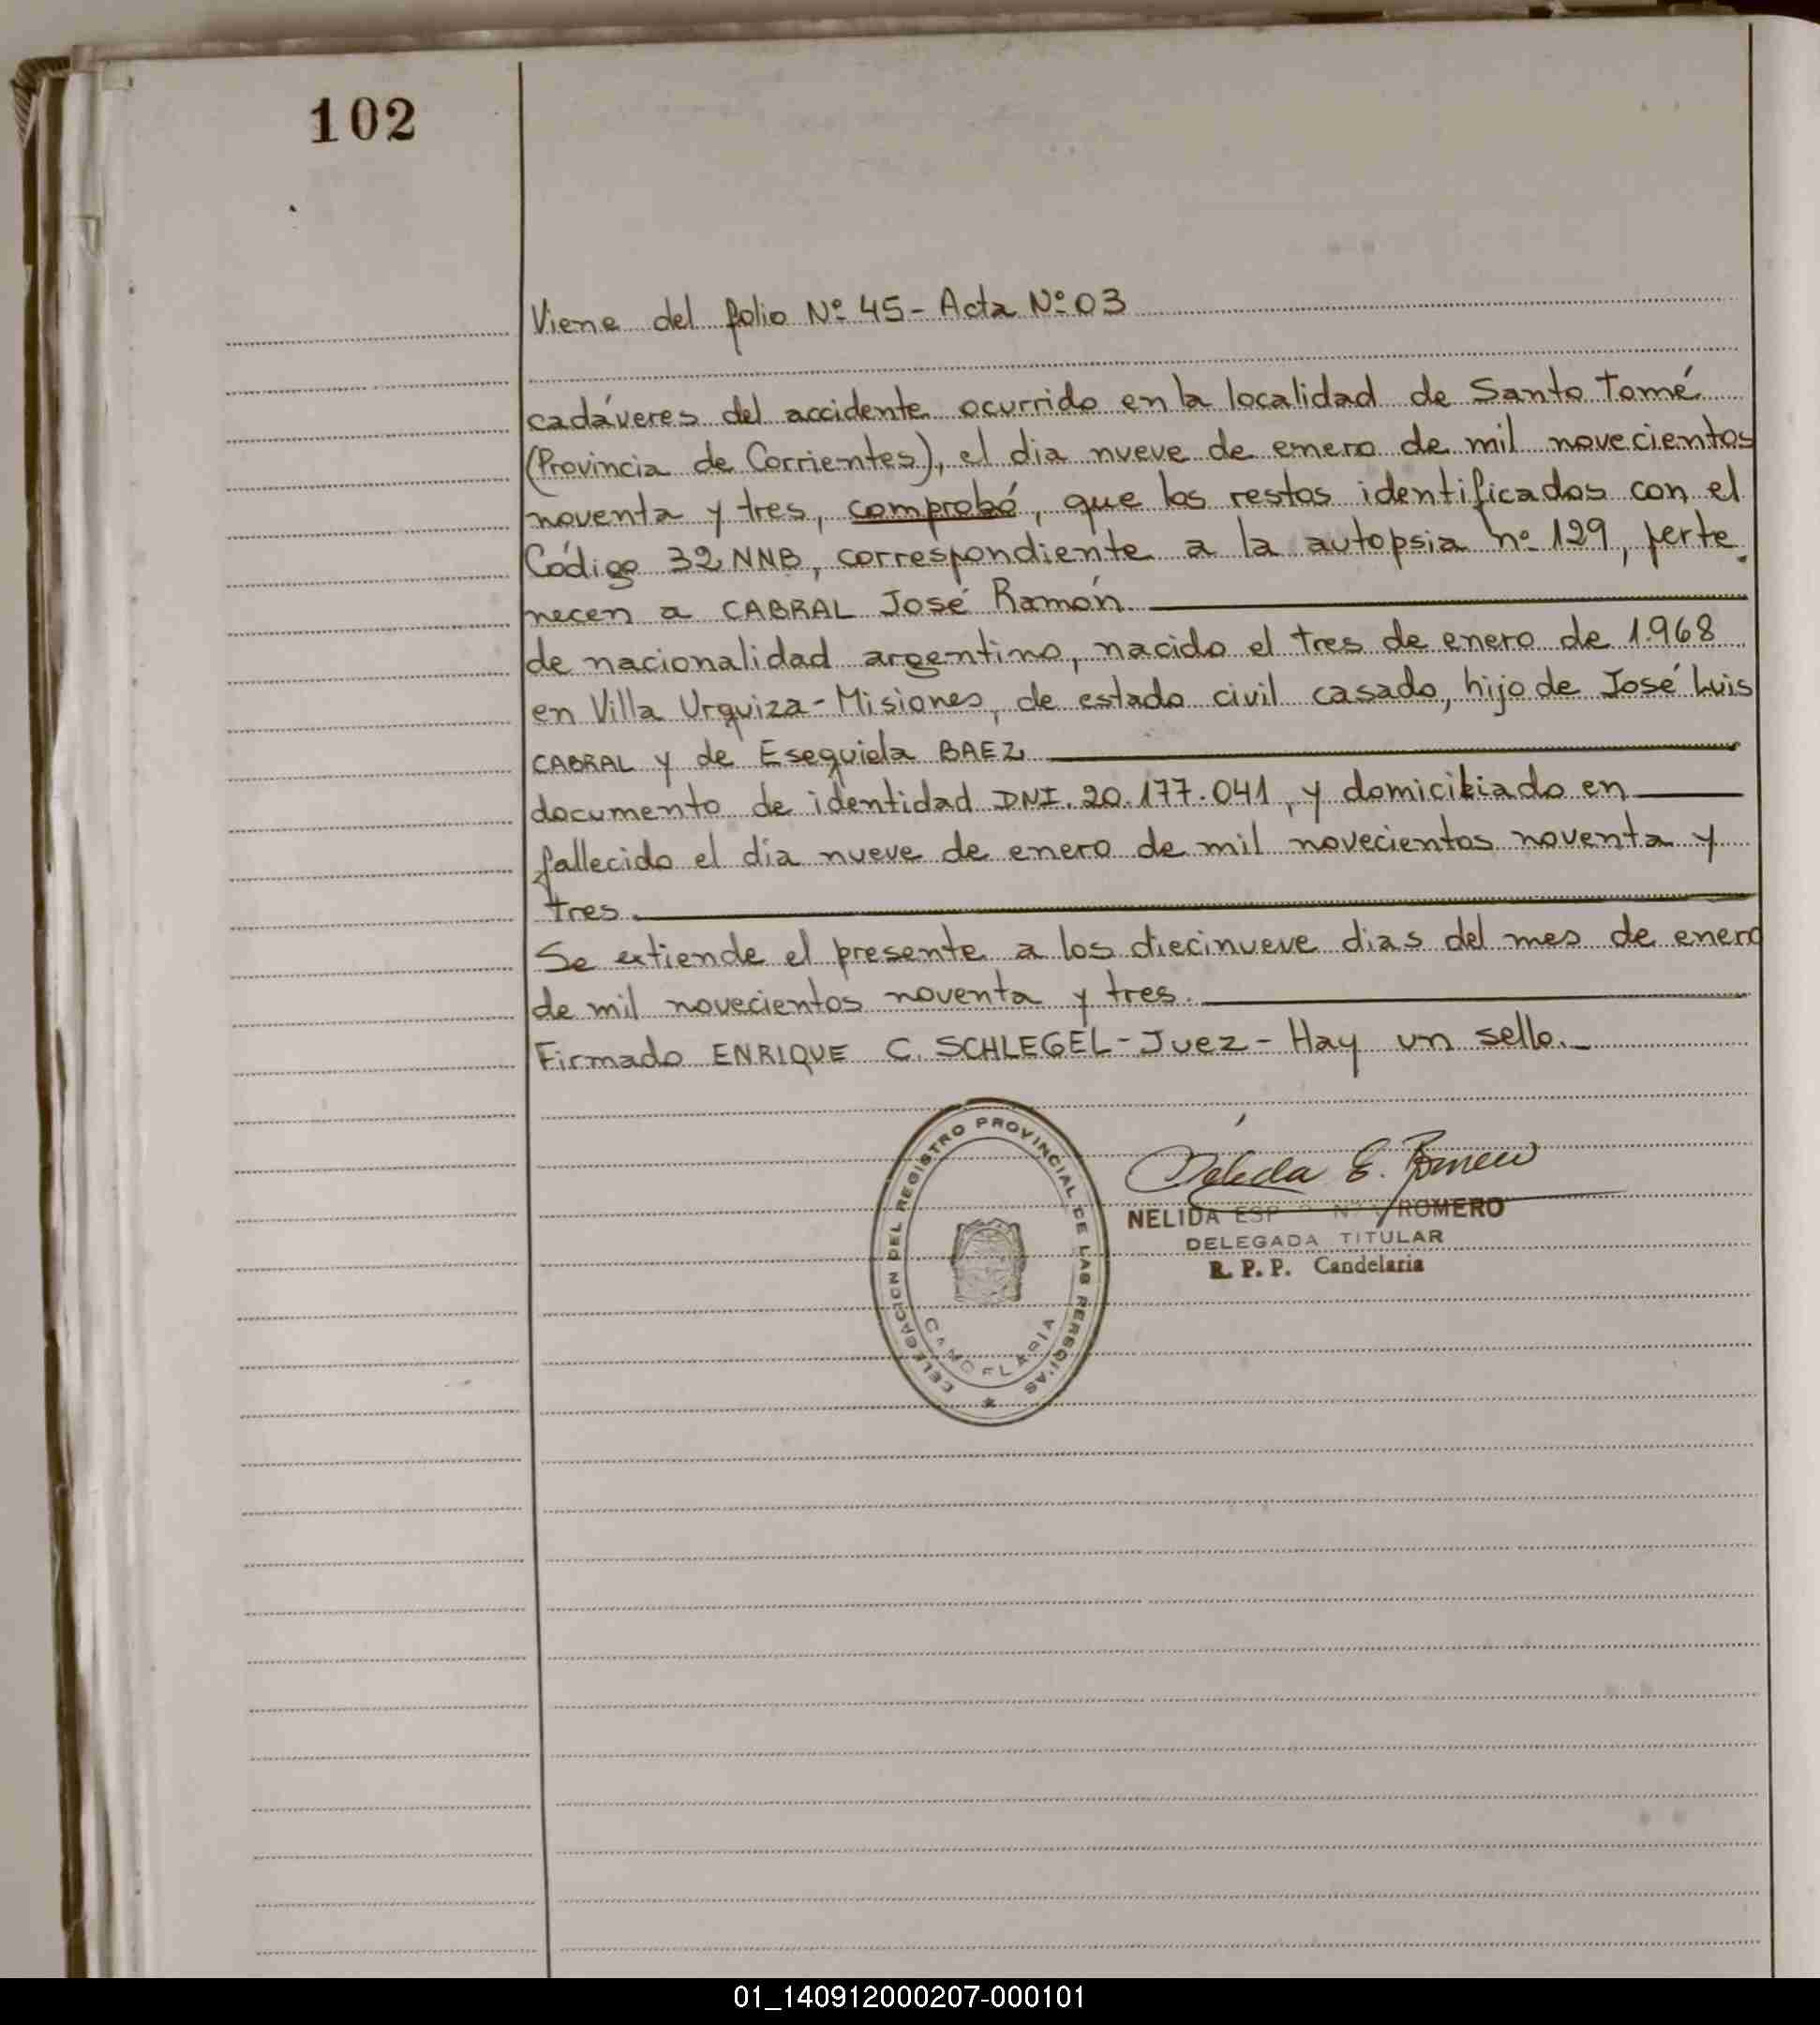 102
Viene del folio Nº 45 - Acta Nº 03
cadáveres del accidente ocurrido en la localidad de Santo Tomé
(Provincia de Corrientes), el dia nueve de enero de mil novecientos
noventa y tres, comprobó, que los restos identificados con el
Código 32 NNB, correspondiente a la autopsia nº 129, perte
necen a CABRAL José Ramón
de nacionalidad argentino, nacido el tres de enero de 1.968
en Villa Urquiza - Misiones, de estado civil casado, hijo de José Luis
CABRAL y de Esequiela BAEZ
documento de identidad DNI. 20.177.041, y domiciliado en
fallecido el día nueve de enero de mil novecientos noventa y
tres.
Se extiende el presente a los diecinueve dias del mes de enero
de mil novecientos noventa y tres.
Firmado ENRIQUE C. SCHLEGEL - Juez - Hay un sello.
DELEGACION DEL REGISTRO PROVINCIAL DE LAS PERSONAS
CANDELARIA
NELIDA ROMERO
DELEGADA TITULAR
R. P. P. Candelaria
01_140912000207-000101